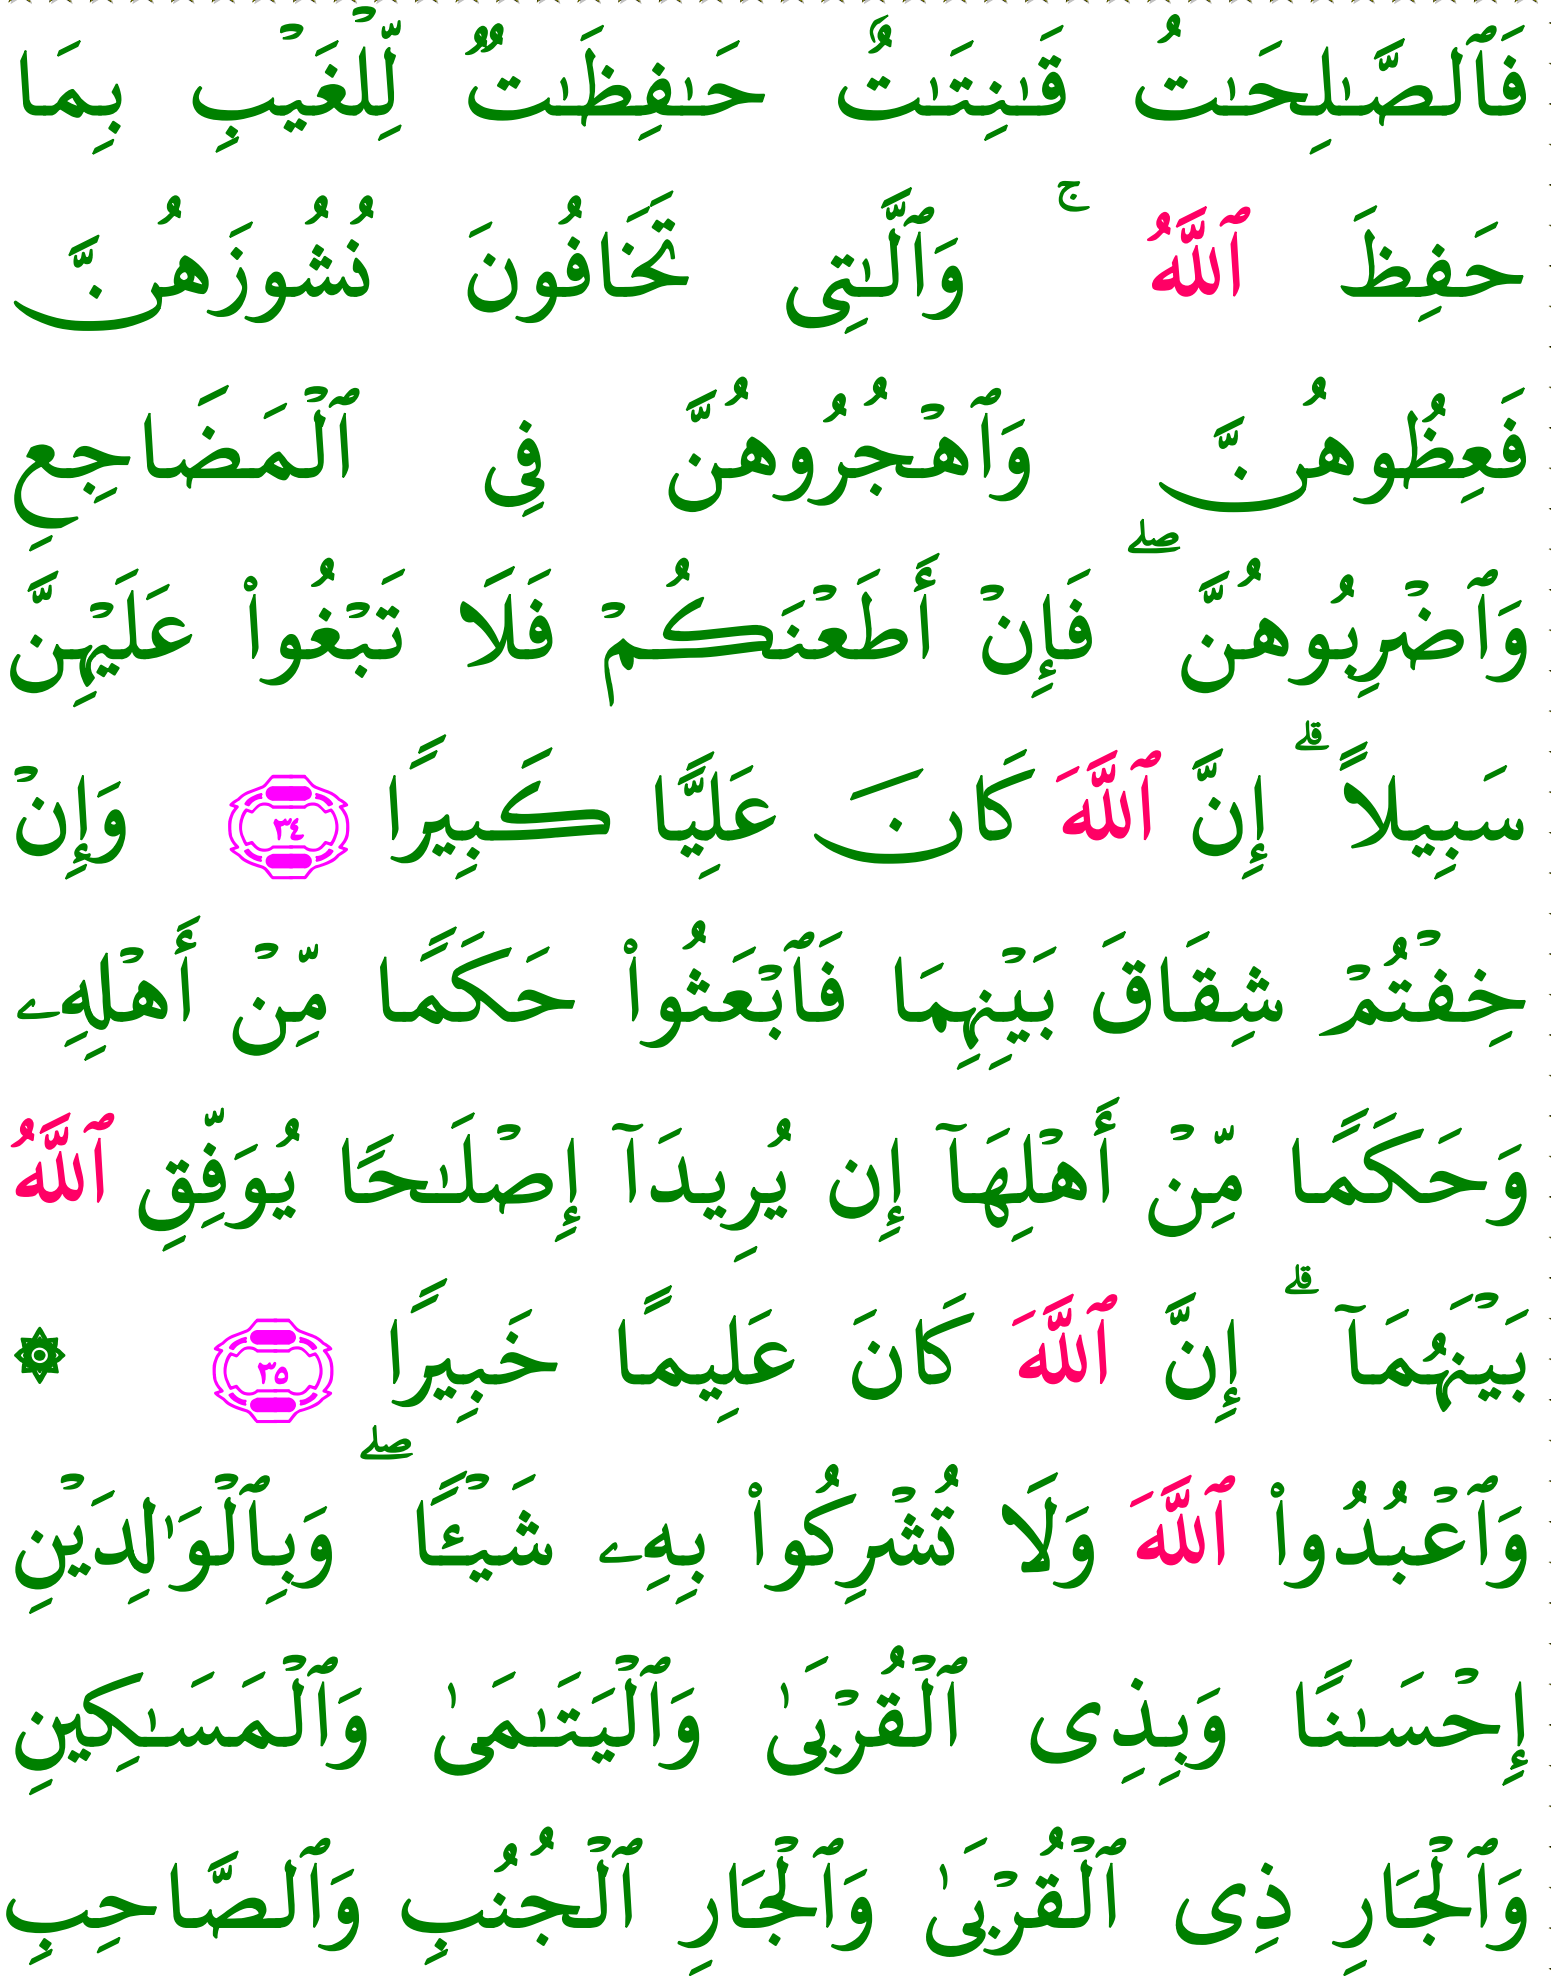 فَٱلصَّـٰلِحَـٰتُ قَـٰنِتَـٰتٌ حَـٰفِظَـٰتٌ لِّلْغَيْبِ بِمَا
حَفِظَ ٱللَّهُ ۚ وَٱلَّـٰتِى تَخَافُونَ نُشُوزَهُنَّ
فَعِظُوهُنَّ وَٱهْجُرُوهُنَّ فِى ٱلْمَضَاجِعِ
وَٱضْرِبُوهُنَّ ۖ فَإِنْ أَطَعْنَكُمْ فَلَا تَبْغُوا۟ عَلَيْهِنَّ
سَبِيلاً ۗ إِنَّ ٱللَّهَ كَانَ عَلِيًّا كَبِيرًا ٣٤ وَإِنْ
خِفْتُمْ شِقَاقَ بَيْنِهِمَا فَٱبْعَثُوا۟ حَكَمًا مِّنْ أَهْلِهِۦ
وَحَكَمًا مِّنْ أَهْلِهَآ إِن يُرِيدَآ إِصْلَـٰحًا يُوَفِّقِ ٱللَّهُ
بَيْنَهُمَآ ۗ إِنَّ ٱللَّهَ كَانَ عَلِيمًا خَبِيرًا ٣٥ ۞
وَٱعْبُدُوا۟ ٱللَّهَ وَلَا تُشْرِكُوا۟ بِهِۦ شَيْـًٔا ۖ وَبِٱلْوَٰلِدَيْنِ
إِحْسَـٰنًا وَبِذِى ٱلْقُرْبَىٰ وَٱلْيَتَـٰمَىٰ وَٱلْمَسَـٰكِينِ
وَٱلْجَارِ ذِى ٱلْقُرْبَىٰ وَٱلْجَارِ ٱلْجُنُبِ وَٱلصَّاحِبِ